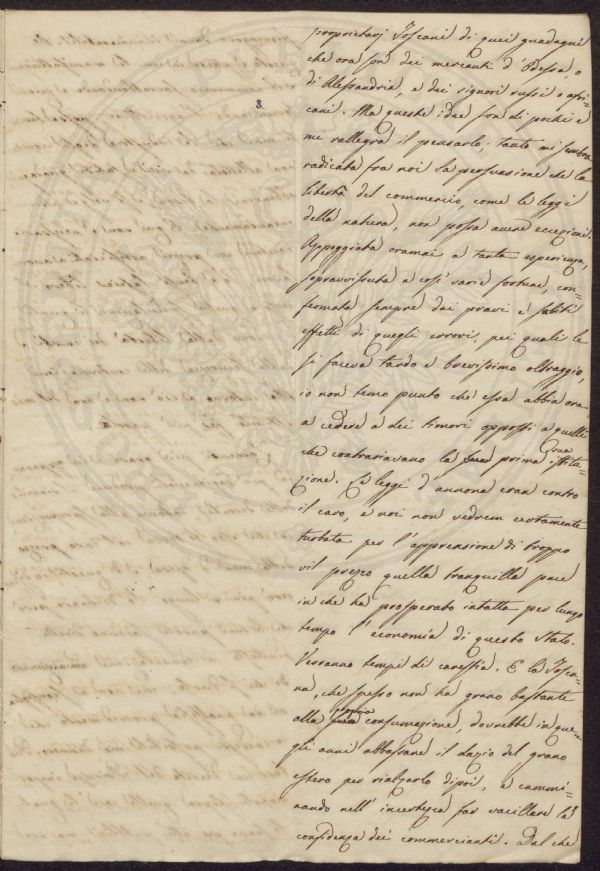 8.
proprietarj Toscani di quei guadagni
che ora son dei mercanti d'Odessa, o
di Alessandria, e dei signori russi o afri
cani. Ma queste idee son di pochi e
mi rallegra il pensarlo; tanto mi sembra
radicata fra noi la persuasione che la
libertà del commercio, come le leggi
della natura, non possa avere eccezioni.
Appoggiata oramai a tanta esperienza,
sopravvissuta a così varie fortune, con=
fermata sempre dai pravi e subiti
effetti di quegli errori, pei quali le
si faceva tardo e brevissimo oltraggio,
io non temo punto che essa abbia ora
a cedere a dei timori opposti a quelli
che contrariavano la sua prima istitu=
zione. Le leggi d'annona eran contro
il caro, e noi non vedrem certamente
turbata per l'apprensione di troppo
vil prezzo quella tranquilla pace
in che ha prosperato intatta per lungo
tempo l'economia di questo Stato.
Verranno tempi di carestia. E la Tosca=
na, che spesso non ha grano bastante
alla propria consumazione, dovrebbe in que=
gli anni abbassare il dazio del grano
estero per rialzarlo dipoi, e cammi=
nando nell'incertezza far vacillare la
confidenza dei commercianti. Dal che